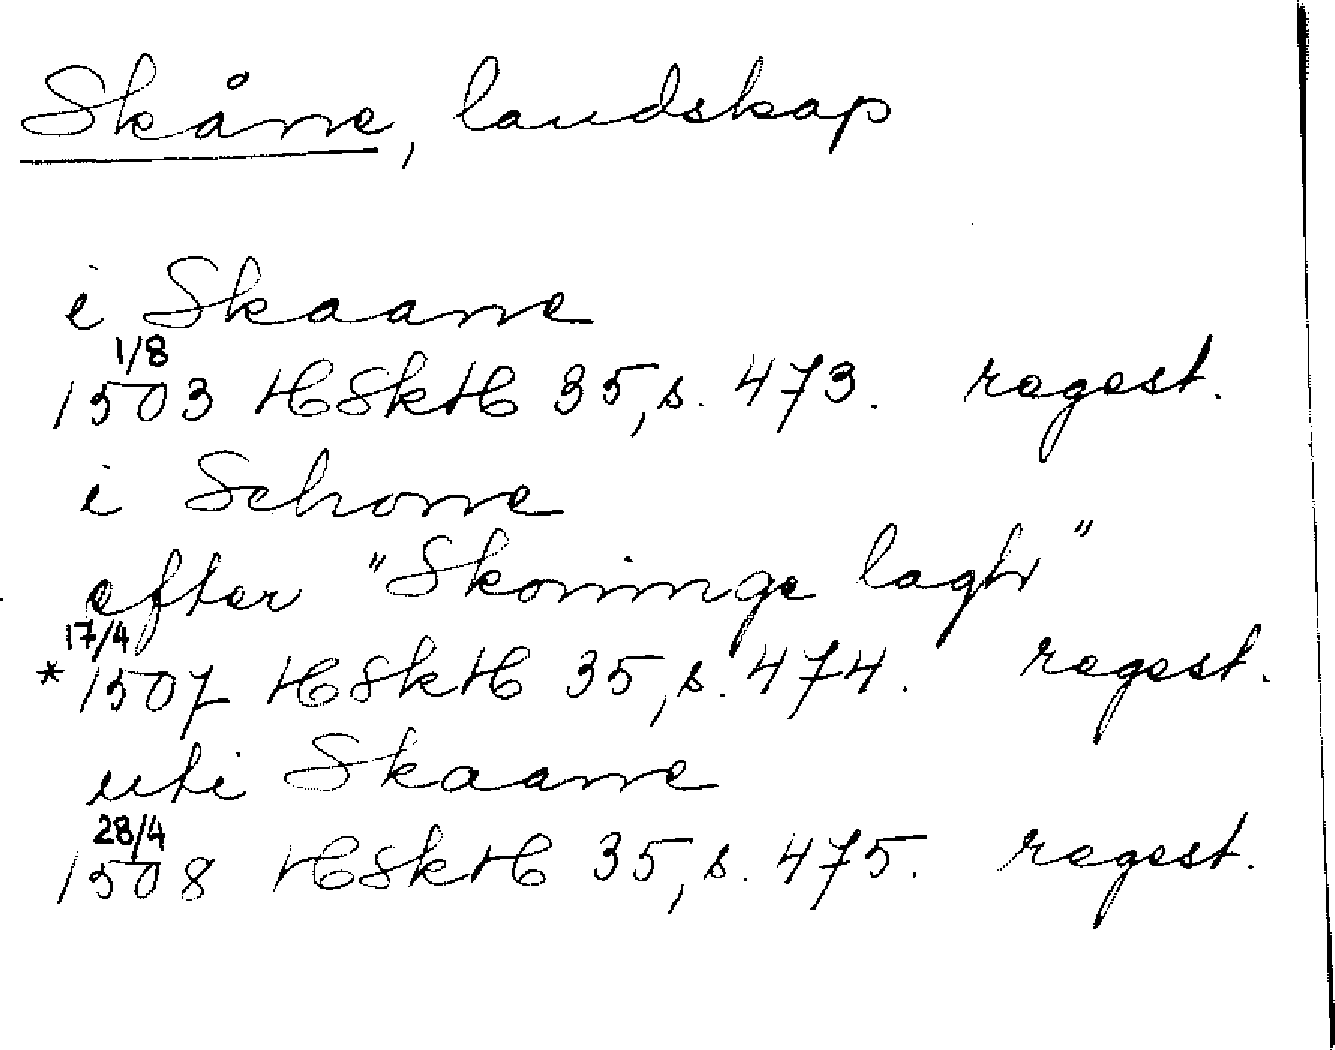 Skåne, landskap
i Skaane
1/8
1503 HSkH 35, s. 473. regest.
i Schone
efter "Skoninge lagh"
17/4
* 1507 HSkH 35, s. 474. regest.
uti Skaane
28/4
1508 HSkH 35, s. 475. regest.